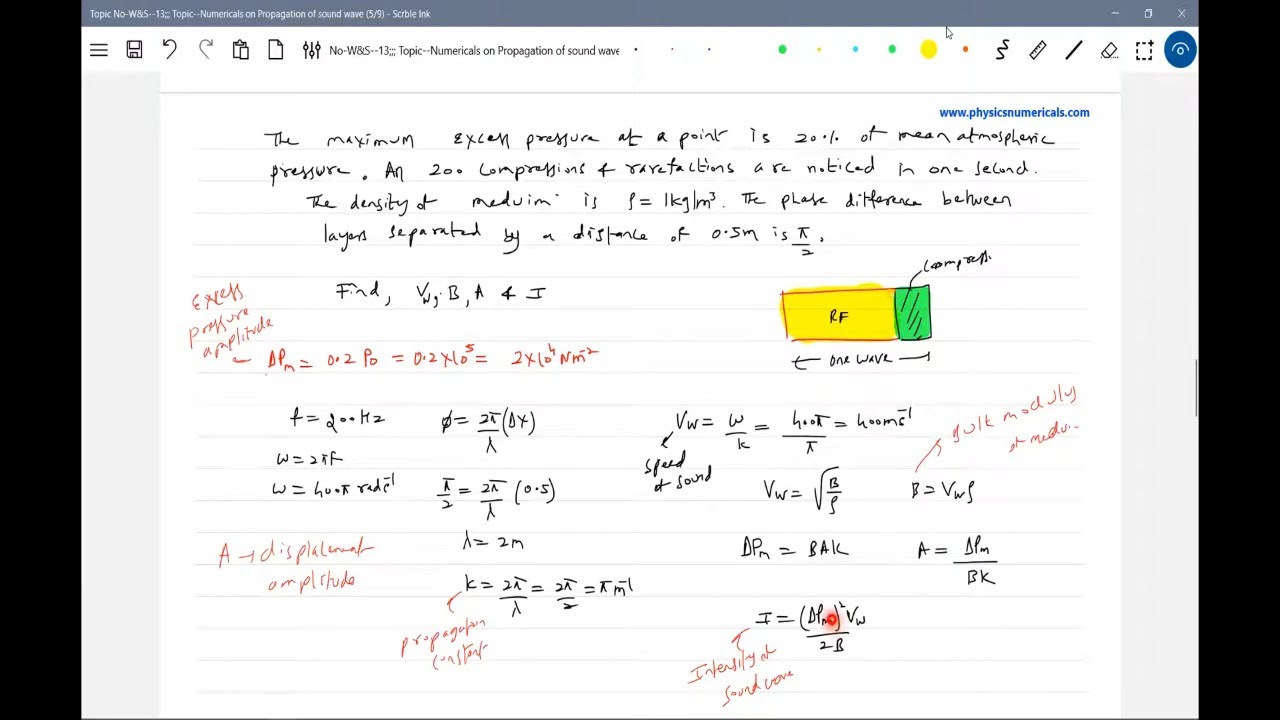 Topic No-W&S--13;;; Topic--Numericals on Propagation of sound wave (5/9) - Scrble Ink
No-W&S--13;;; Topic--Numericals on Propagation of sound wave
www.physicsnumericals.com
The maximum Excess pressure at a point is 20% of mean atmospheric
pressure. An 200 Compressions & rarefactions are noticed in one second.
The density of meduim is ρ = 1kg/m³. The phase difference between
layers separated by a distance of 0.5m is π/2.
Find, Vw, B, A & I
Compress.
RF
one wave
Excess
pressure
amplitude
ΔPm = 0.2 P0 = 0.2×10⁵ = 2×10⁴ Nm⁻²
f = 200Hz
ω = 2πf
ω = 400π rads⁻¹
A → displacement
amplitude
ϕ = 2π/λ (Δx)
π/2 = 2π/λ (0.5)
λ = 2m
k = 2π/λ = 2π/2 = π m⁻¹
propagation
constant
Vw = ω/k = 400π/π = 400ms⁻¹
speed
of sound
Bulk modulus
of medu..
Vw = √B/ρ
B = Vwρ
ΔPm = BAK
A = ΔPm/BK
I = (ΔPm)²Vw/2B
Intensity of
sound wave